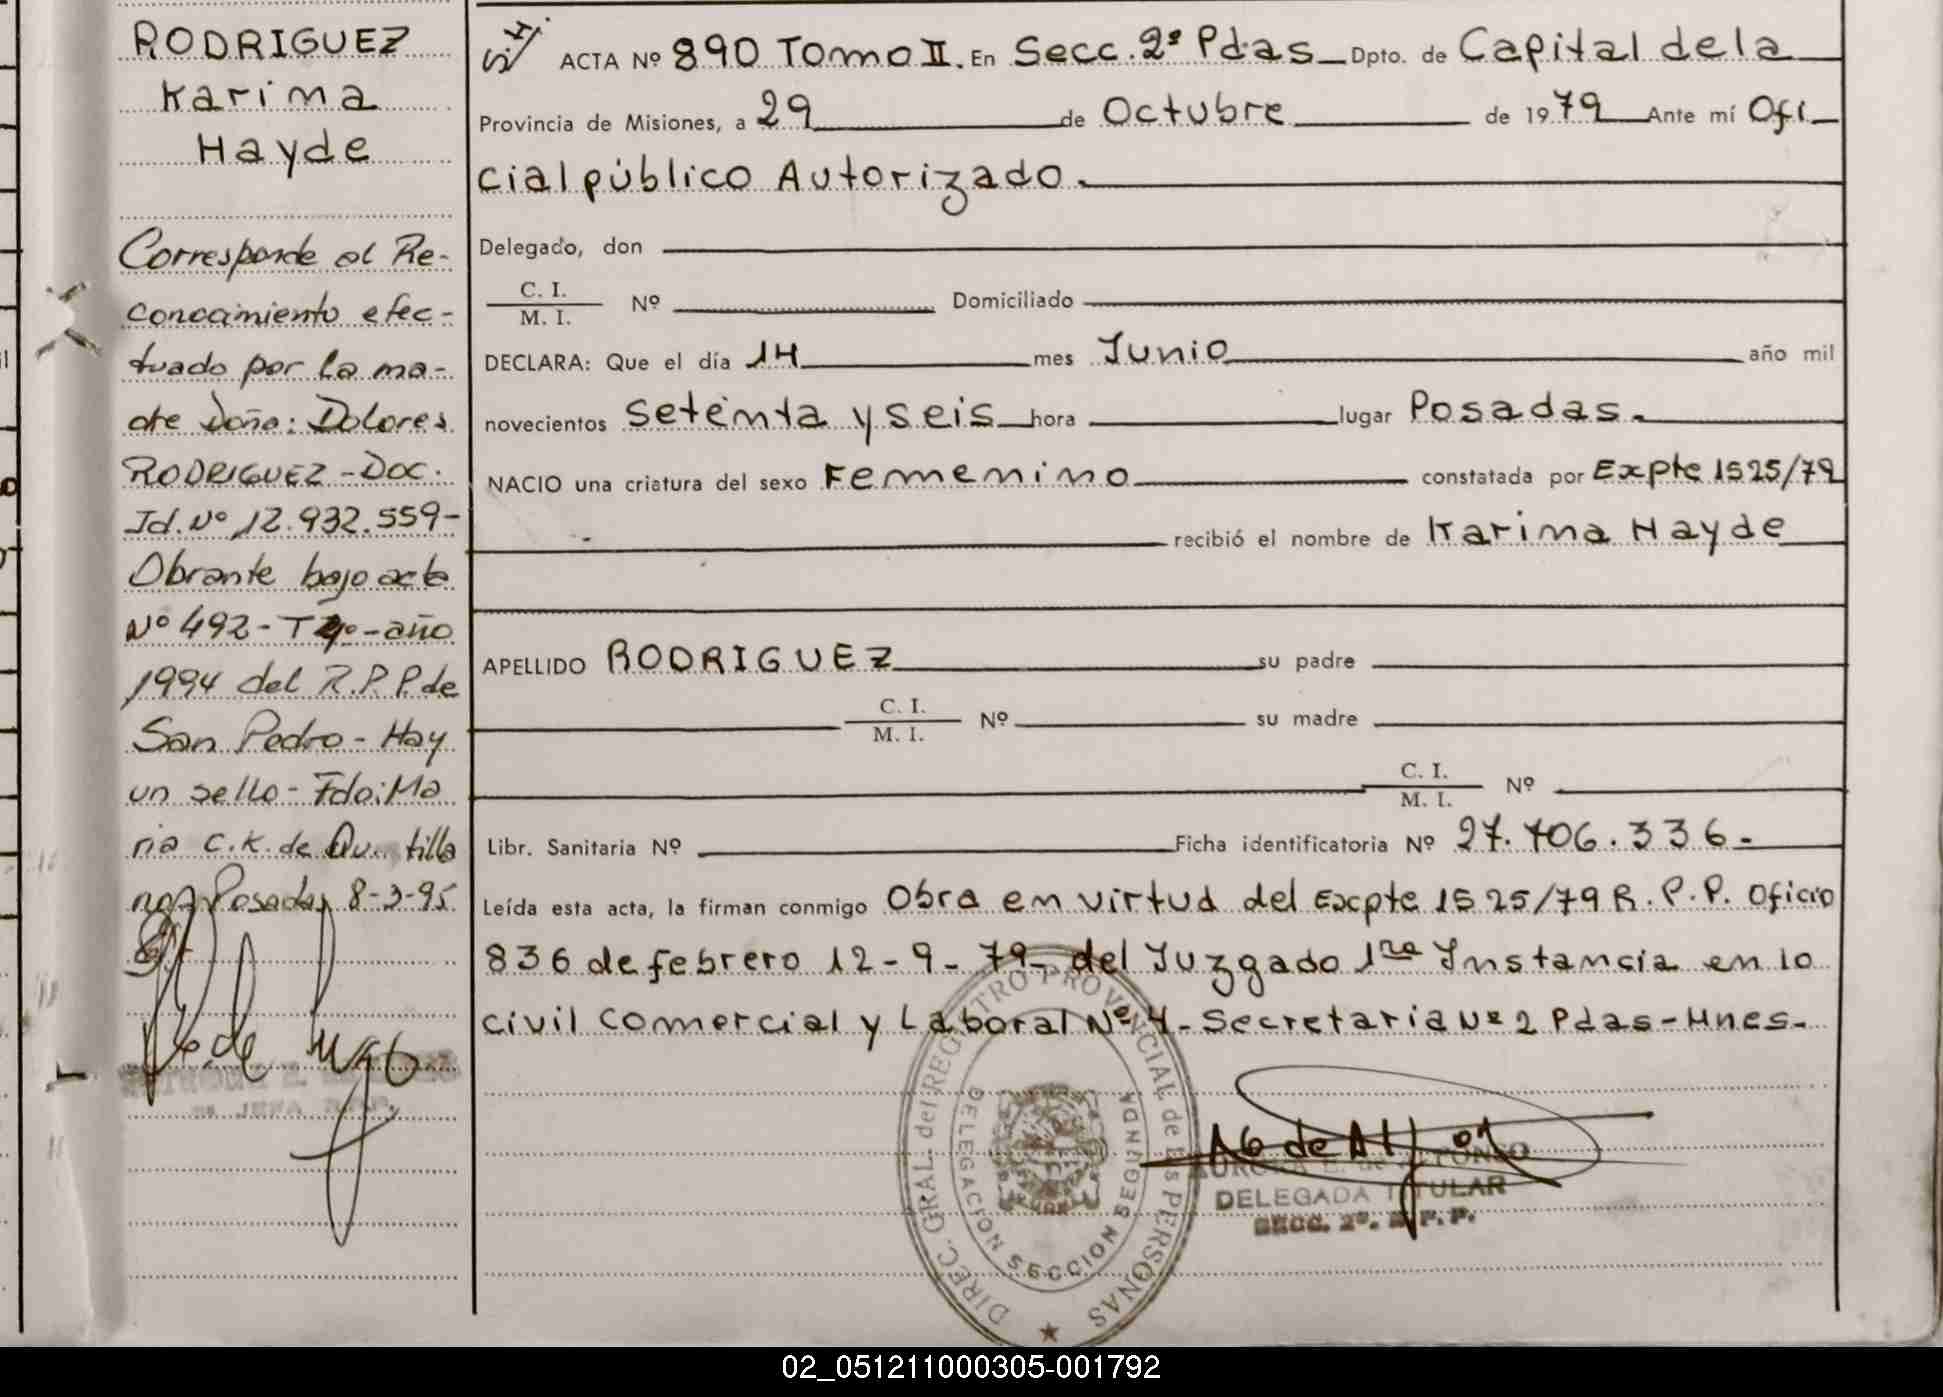 RODRIGUEZ
Karima
Hayde
Corresponde al Re-
conocimiento efec-
tuado por la ma-
dre Doña: Dolores
RODRIGUEZ - Doc.
Id. Nº 12.932.559-
Obrante bajo acta
Nº 492 - T - año
1994 del R.P.P. de
San Pedro - Hay
un sello - Fdo: Ma
ria C.K. de
Posadas 8-3-95
ACTA Nº 890 Tomo II. En Secc. 2ª Pdas Dpto. de Capital de la
Provincia de Misiones, a 29 de Octubre de 1979 Ante mí Ofi
cial público Autorizado.
Delegado, don
C. I.
M. I. Nº Domiciliado
DECLARA: Que el día 14 mes Junio año mil
novecientos setenta y seis hora lugar Posadas.
NACIO una criatura del sexo Femenino constatada por Expte 1525/79
recibió el nombre de Karima Hayde
APELLIDO RODRIGUEZ su padre
C. I.
M. I. Nº su madre
C. I.
M. I. Nº
Libr. Sanitaria Nº Ficha identificatoria Nº 27.706.336-
Leída esta acta, la firman conmigo Obra en virtud del Expte 1525/79 R.P.P. Oficio
836 de febrero 12-9-79- del Juzgado 1ra Instancia en lo
civil comercial y Laboral Nº 4 - Secretaria Nº 2 Pdas - Mnes.
DIREC. GRAL. del REGISTRO PROVINCIAL de las PERSONAS
DELEGACION SECCION SEGUNDA
DELEGADA TITULAR
SECC. 2ª. R.P.P.
02_051211000305-001792